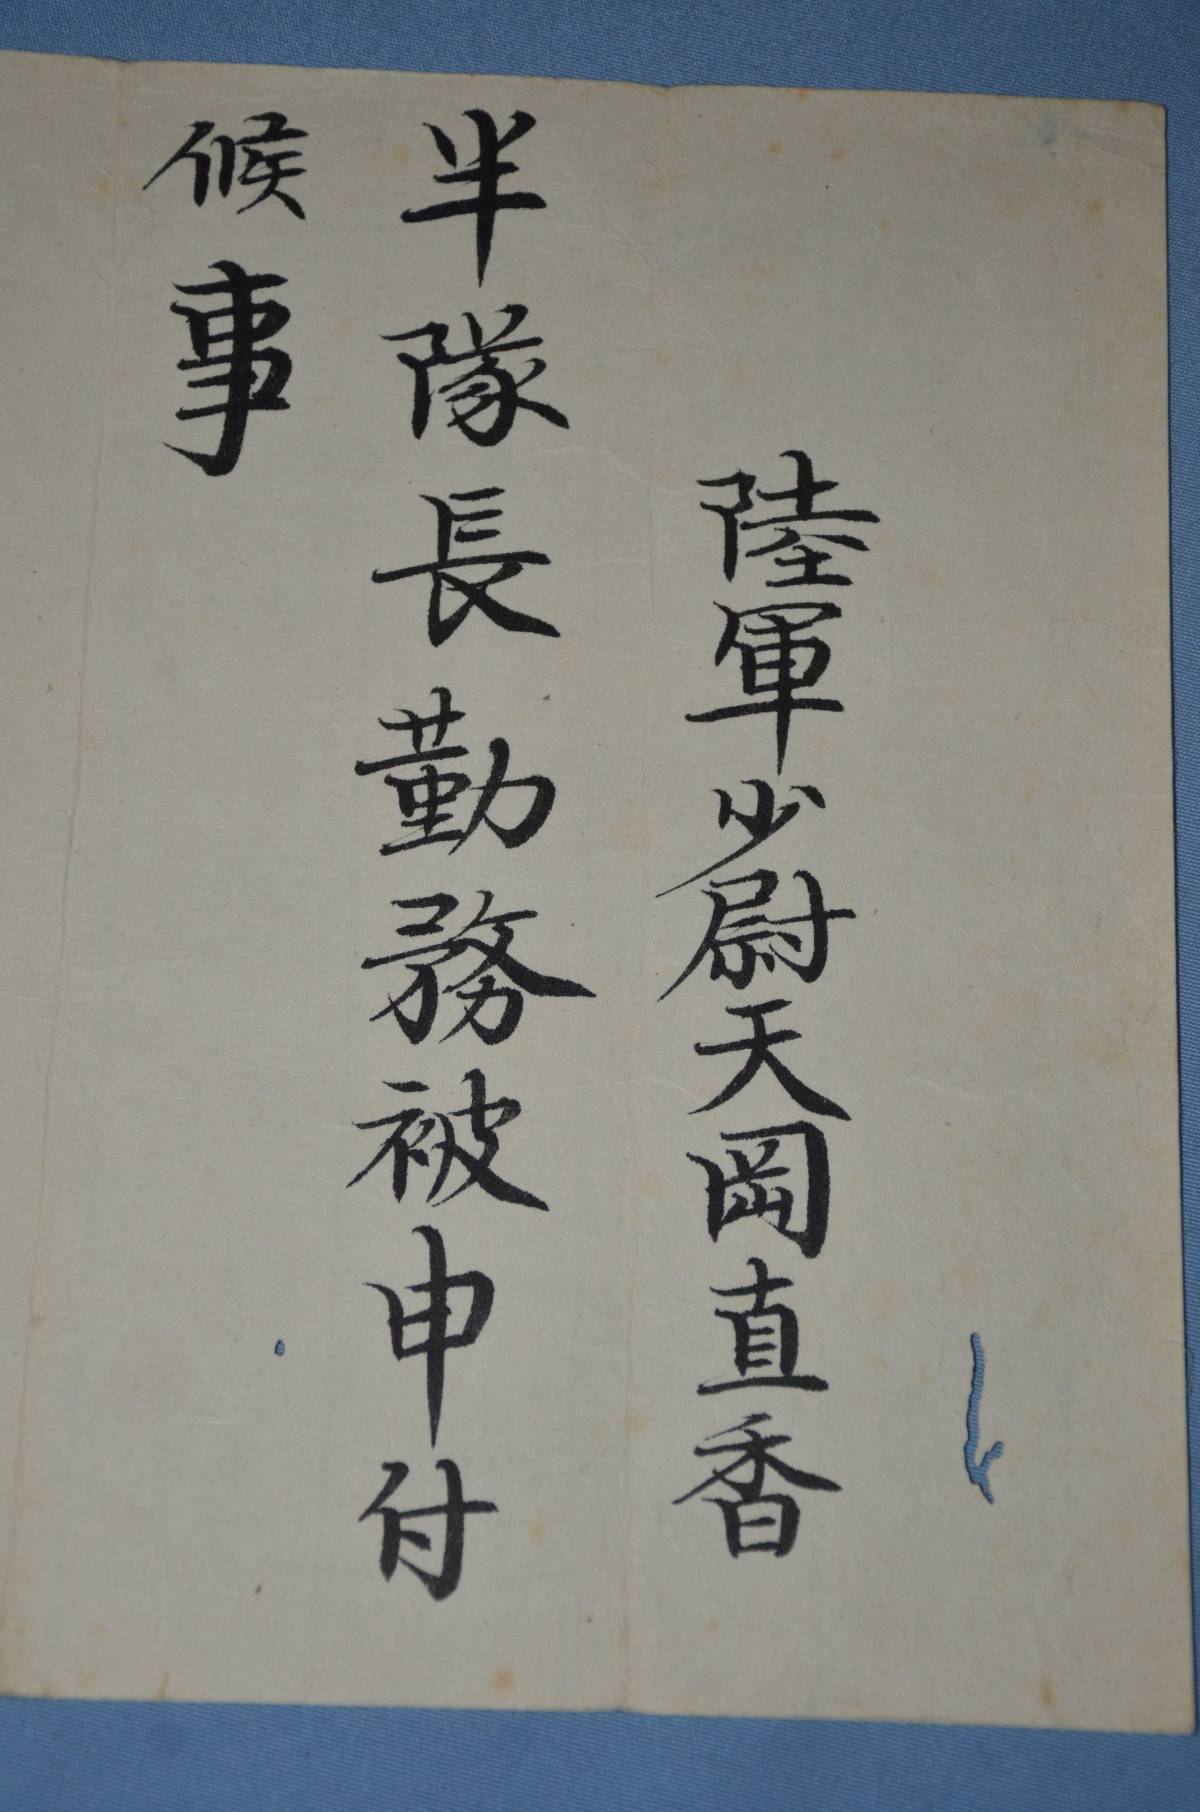 陸軍少尉天岡直香
半隊長勤務被申付
候事